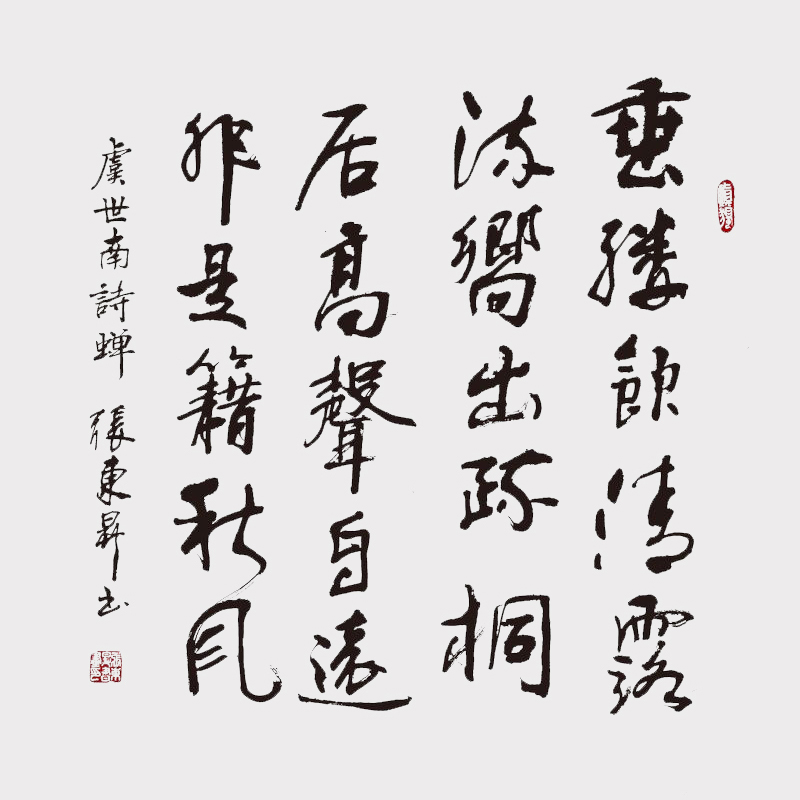 垂緌飲清露
流嚮出疏桐
居高聲自遠
非是籍秋風
虞世南詩蝉 張東昇书